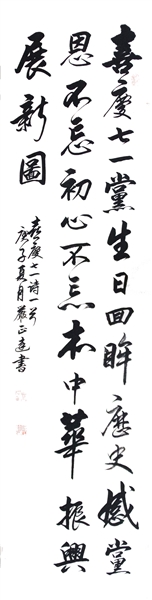 喜慶七一黨生日回眸歷史憾黨
恩不忘初心不忘本中華振興
展新圖
喜慶七一诗一首
庚子夏月嚴正達書